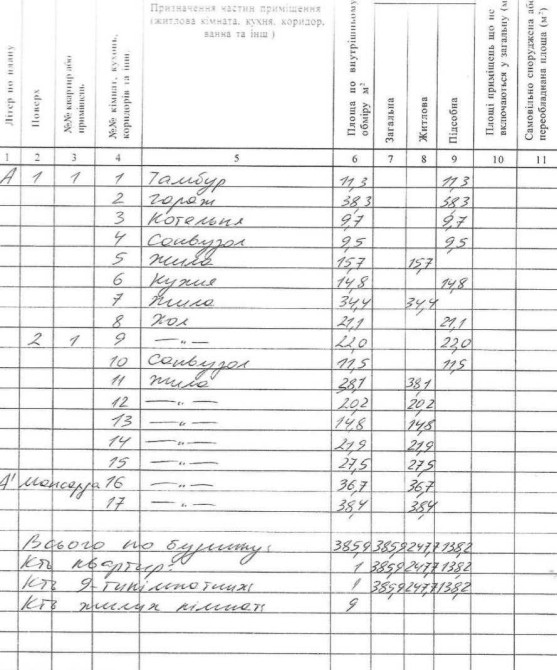 Літер по плану
Поверх
№№ квартир або приміщень
№№ кімнат, кухонь, коридорів та інш.
Призначення частин приміщення
(житлова кімната, кухня, коридор,
ванна та інш )
Площа по внутрішньому обміру м²
Загальна
Житлова
Підсобна
Площі приміщень що не включаються у загальну (м
Самовільно споруджена або переобладнана площа (м²)
1 2 3 4 5 6 7 8 9 10 11
А 1 1 1 Тамбур 11,3 11,3
2 гараж 38,3 38,3
3 Котельня 9,7 9,7
4 Санвузол 9,5 9,5
5 жила 15,7 15,7
6 Кухня 14,8 14,8
7 жила 34,4 34,4
8 Хол 21,1 21,1
2 1 9 —"— 22,0 22,0
10 Санвузол 11,5 11,5
11 жила 38,1 38,1
12 —"— 20,2 20,2
13 —"— 14,8 14,8
14 —"— 21,9 21,9
15 —"— 27,5 27,5
А' мансарда 16 —"— 36,7 36,7
17 —"— 38,4 38,4
Всього по будинку: 385,9 385,9 247,7 138,2
К-ть квартир: 1 385,9 247,7 138,2
К-ть 9-тикімнатних: 1 385,9 247,7 138,2
К-ть жилих кімнат: 9